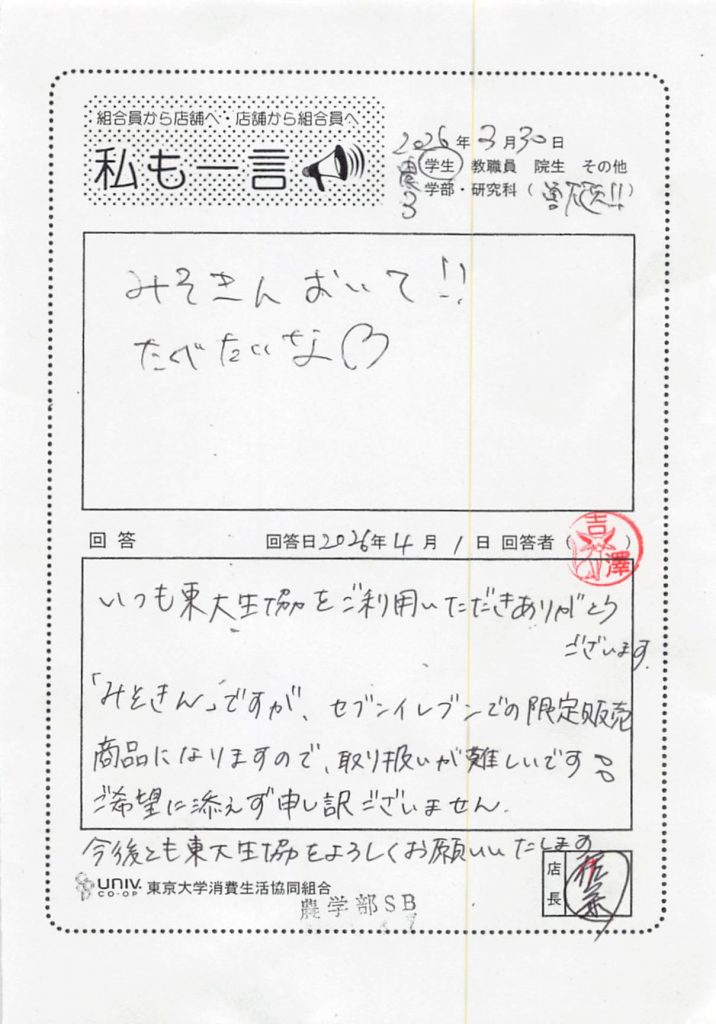 組合員から店舗へ・店舗から組合員へ
私も一言
2026年3月30日
学生 教職員 院生 その他
農3 学部・研究科( 獣医!!)
みそきんおいて!!
たべたいな♡
回答 回答日2026年4月1日 回答者( 吉澤 )
いつも東大生協をご利用いただきありがとう
ございます。
「みそきん」ですが、セブンイレブンでの限定販売
商品になりますので、取り扱いが難しいです
ご希望に添えず申し訳ございません。
今後とも東大生協をよろしくお願いいたします
UNIV. CO-OP 東京大学消費生活協同組合
農学部SB
店長